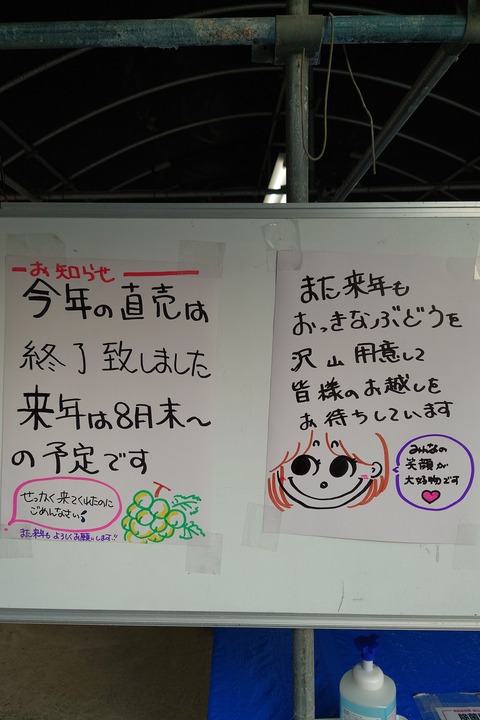 お知らせ
今年の直売は
終了致しました
来年は8月末〜
の予定です
せっかく来てくれたのに
ごめんなさい
また来年もよろしくお願いします!!
また来年も
おっきなぶどうを
沢山用意して
皆様のお越しを
お待ちしています
みんなの
笑顔が
大好物です